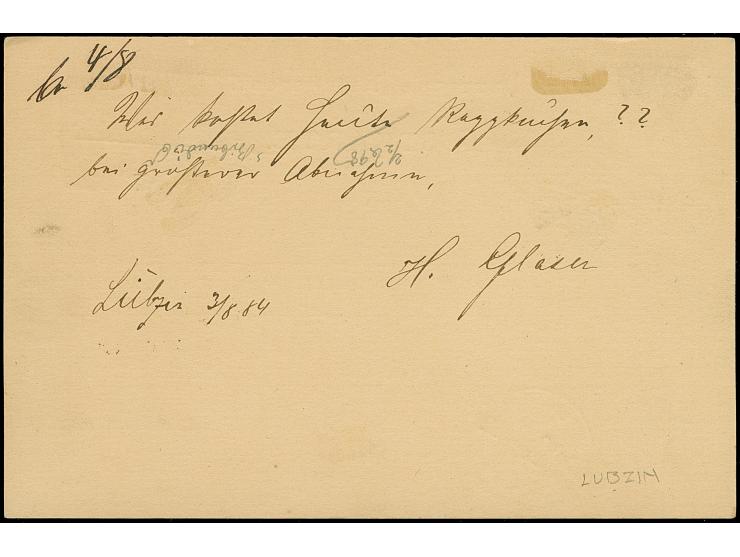 4/8
Was kostet heute Rappkuchen, ??
bei größerer Abnahme,
H. Glaser
Lübzin 3/8 84
LUBZIN